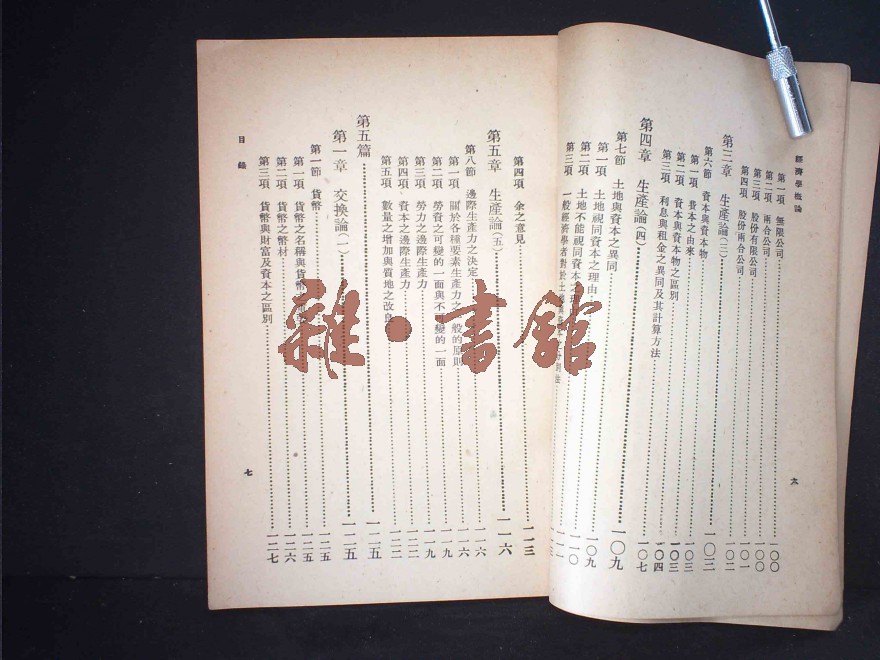 經濟學概論
第一項 無限公司 一〇〇
第二項 兩合公司 一〇〇
第三項 股份有限公司 一〇一
第四項 股份兩合公司 一〇二
第三章 生產論(三) 一〇三
第六節 資本與資本物 一〇三
第一項 資本之由來 一〇三
第二項 資本與資本物之區別 一〇三
第三項 利息與租金之異同及其計算方法 一〇四
第四章 生產論(四) 一〇七
第七節 土地與資本之異同 一〇九
第一項 土地視同資本之理由 一〇九
第二項 土地不能視同資本之理由 一一〇
第三項 一般經濟學者對於土地
六
第四項 余之意見 一一三
第五章 生產論(五) 一一六
第八節 邊際生產力之決定 一一六
第一項 關於各種要素生產力之一般的原則 一一六
第二項 勞資之可變的一面與不可變的一面 一一九
第三項 勞力之邊際生產力 一一九
第四項 資本之邊際生產力 一二二
第五項 數量之增加與質地之改良 一二二
第五篇 一二五
第一章 交換論(一) 一二五
第一節 貨幣 一二五
第一項 貨幣之名稱與貨幣 一二五
第二項 貨幣之幣材 一二六
第三項 貨幣與財富及資本之區別 一二七
目錄
七
雜·書館